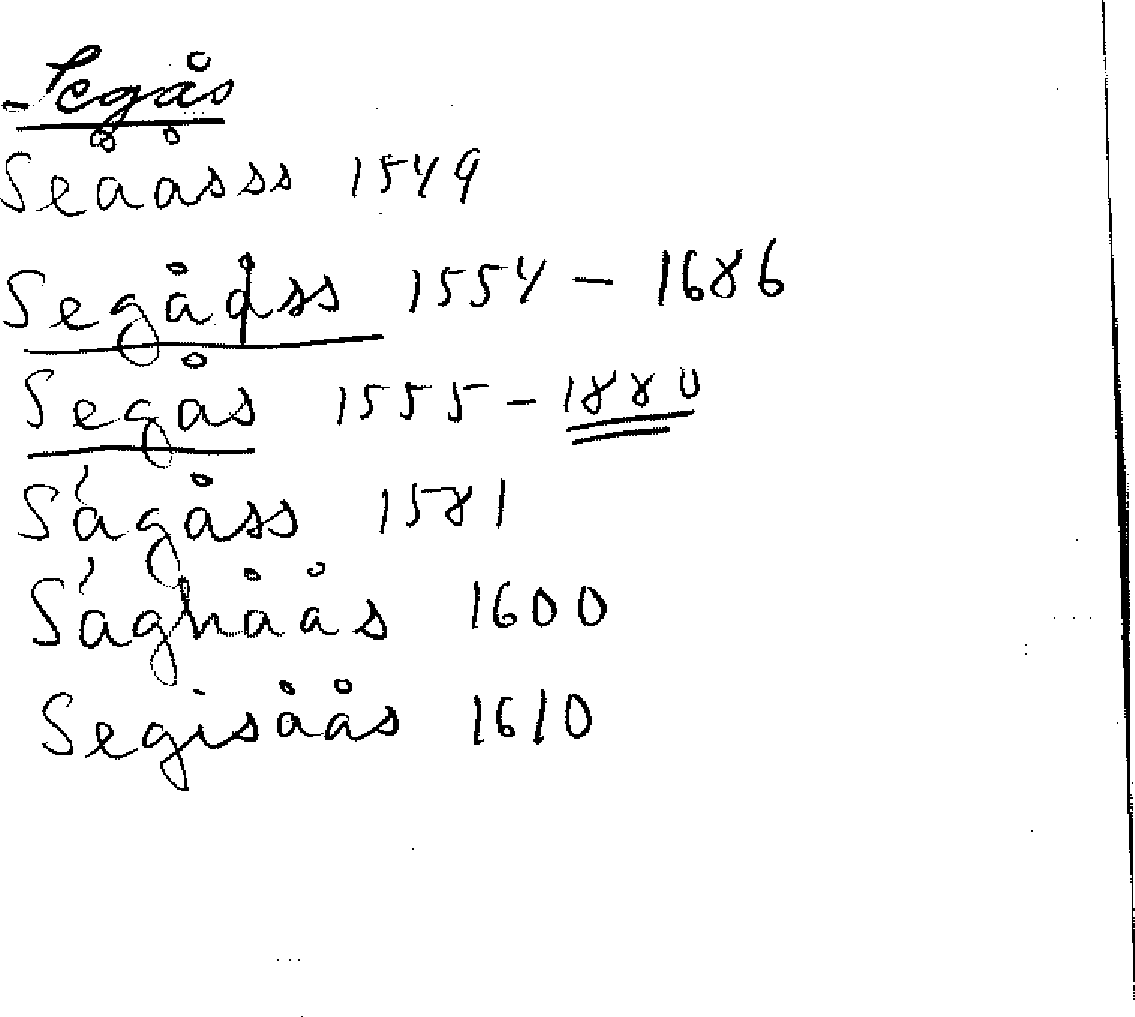 Segås
Seååsss 1549
Segååss 1554 – 1686
Segås 1555 – 1880
Ságåss 1581
Sághåås 1600
Segisåås 1610